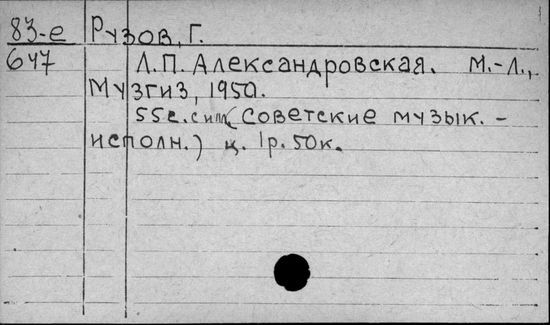 83-е Рузов, Г.
647 Л.П. Александровская. М.-Л.,
Музгиз, 1950.
55с. с илл (Советские музык. -
исполн.) ц. 1р. 50к.